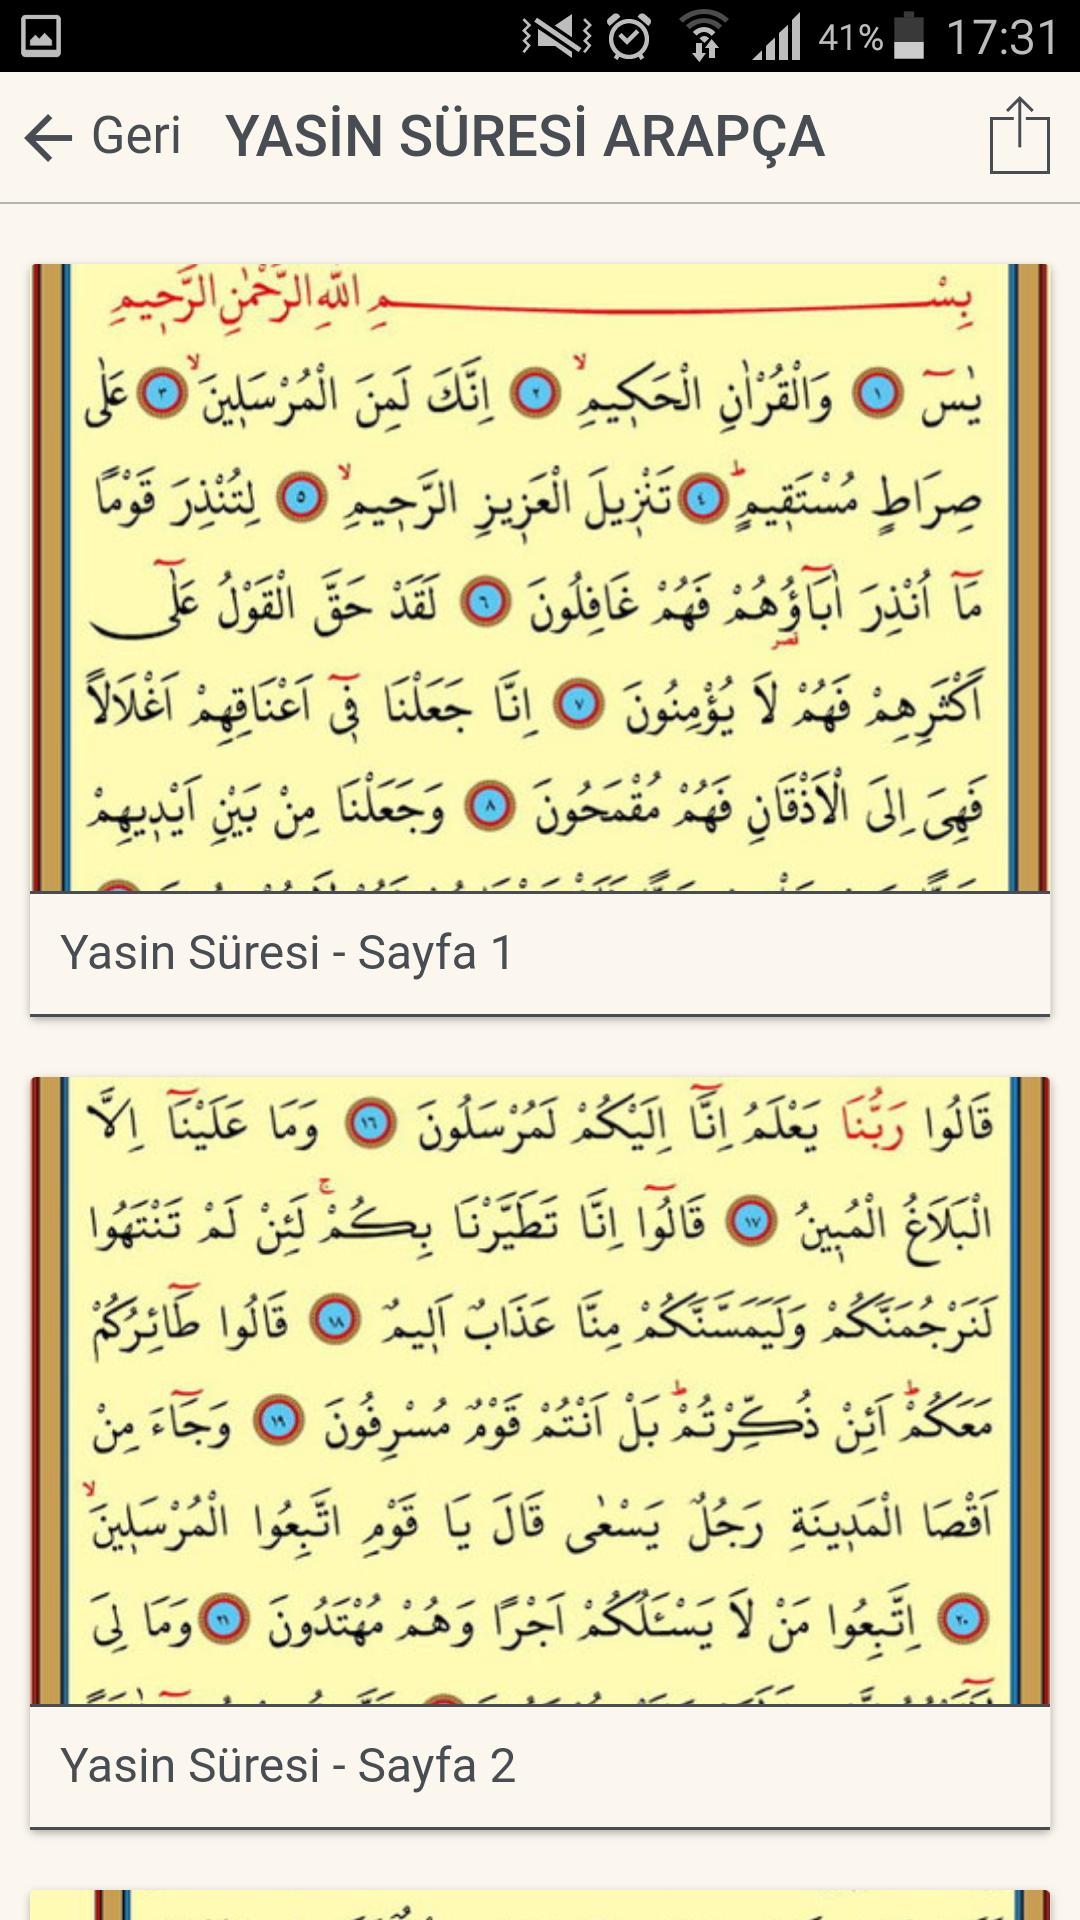 41% 17:31
Geri YASİN SÜRESİ ARAPÇA
بِسْــــــمِ اللّٰهِ الرَّحْمٰنِ الرَّحٖيمِ
يٰسٓ ﴿١﴾ وَالْقُرْاٰنِ الْحَكٖيمِ ۙ ﴿٢﴾ اِنَّكَ لَمِنَ الْمُرْسَلٖينَ ۙ ﴿٣﴾ عَلٰى
صِرَاطٍ مُسْتَقٖيمٍ ۜ ﴿٤﴾ تَنْزٖيلَ الْعَزٖيزِ الرَّحٖيمِ ۙ ﴿٥﴾ لِتُنْذِرَ قَوْمًا
مَٓا اُنْذِرَ اٰبَٓاؤُهُمْ فَهُمْ غَافِلُونَ ﴿٦﴾ لَقَدْ حَقَّ الْقَوْلُ عَلٰٓى
اَكْثَرِهِمْ فَهُمْ لَا يُؤْمِنُونَ ﴿٧﴾ اِنَّا جَعَلْنَا فٖٓى اَعْنَاقِهِمْ اَغْلَالًا
فَهِىَ اِلَى الْاَذْقَانِ فَهُمْ مُقْمَحُونَ ﴿٨﴾ وَجَعَلْنَا مِنْ بَيْنِ اَيْدٖيهِمْ
Yasin Süresi - Sayfa 1
قَالُوا رَبُّنَا يَعْلَمُ اِنَّٓا اِلَيْكُمْ لَمُرْسَلُونَ ﴿١٦﴾ وَمَا عَلَيْنَٓا اِلَّا
الْبَلَاغُ الْمُبٖينُ ﴿١٧﴾ قَالُٓوا اِنَّا تَطَيَّرْنَا بِكُمْ ۚ لَئِنْ لَمْ تَنْتَهُوا
لَنَرْجُمَنَّكُمْ وَلَيَمَسَّنَّكُمْ مِنَّا عَذَابٌ اَلٖيمٌ ﴿١٨﴾ قَالُوا طَٓائِرُكُمْ
مَعَكُمْ ۜ اَئِنْ ذُكِّرْتُمْ ۜ بَلْ اَنْتُمْ قَوْمٌ مُسْرِفُونَ ﴿١٩﴾ وَجَٓاءَ مِنْ
اَقْصَا الْمَدٖينَةِ رَجُلٌ يَسْعٰى قَالَ يَا قَوْمِ اتَّبِعُوا الْمُرْسَلٖينَ ۙ
﴿٢٠﴾ اِتَّبِعُوا مَنْ لَا يَسْـَٔلُكُمْ اَجْرًا وَهُمْ مُهْتَدُونَ ﴿٢١﴾ وَمَا لِىَ
Yasin Süresi - Sayfa 2